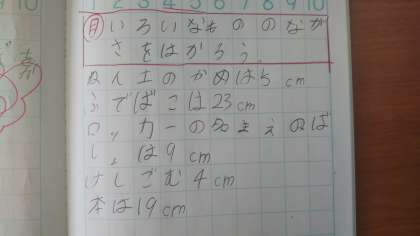 1 2 3 4 5 6 7 8 9 10
いろいなもののなが
さをはかろう。
ねん土のかめは5cm
ふでばこは23cm
ロッカーの名まえのば
しょは9cm
けしごむ4cm
本は19cm